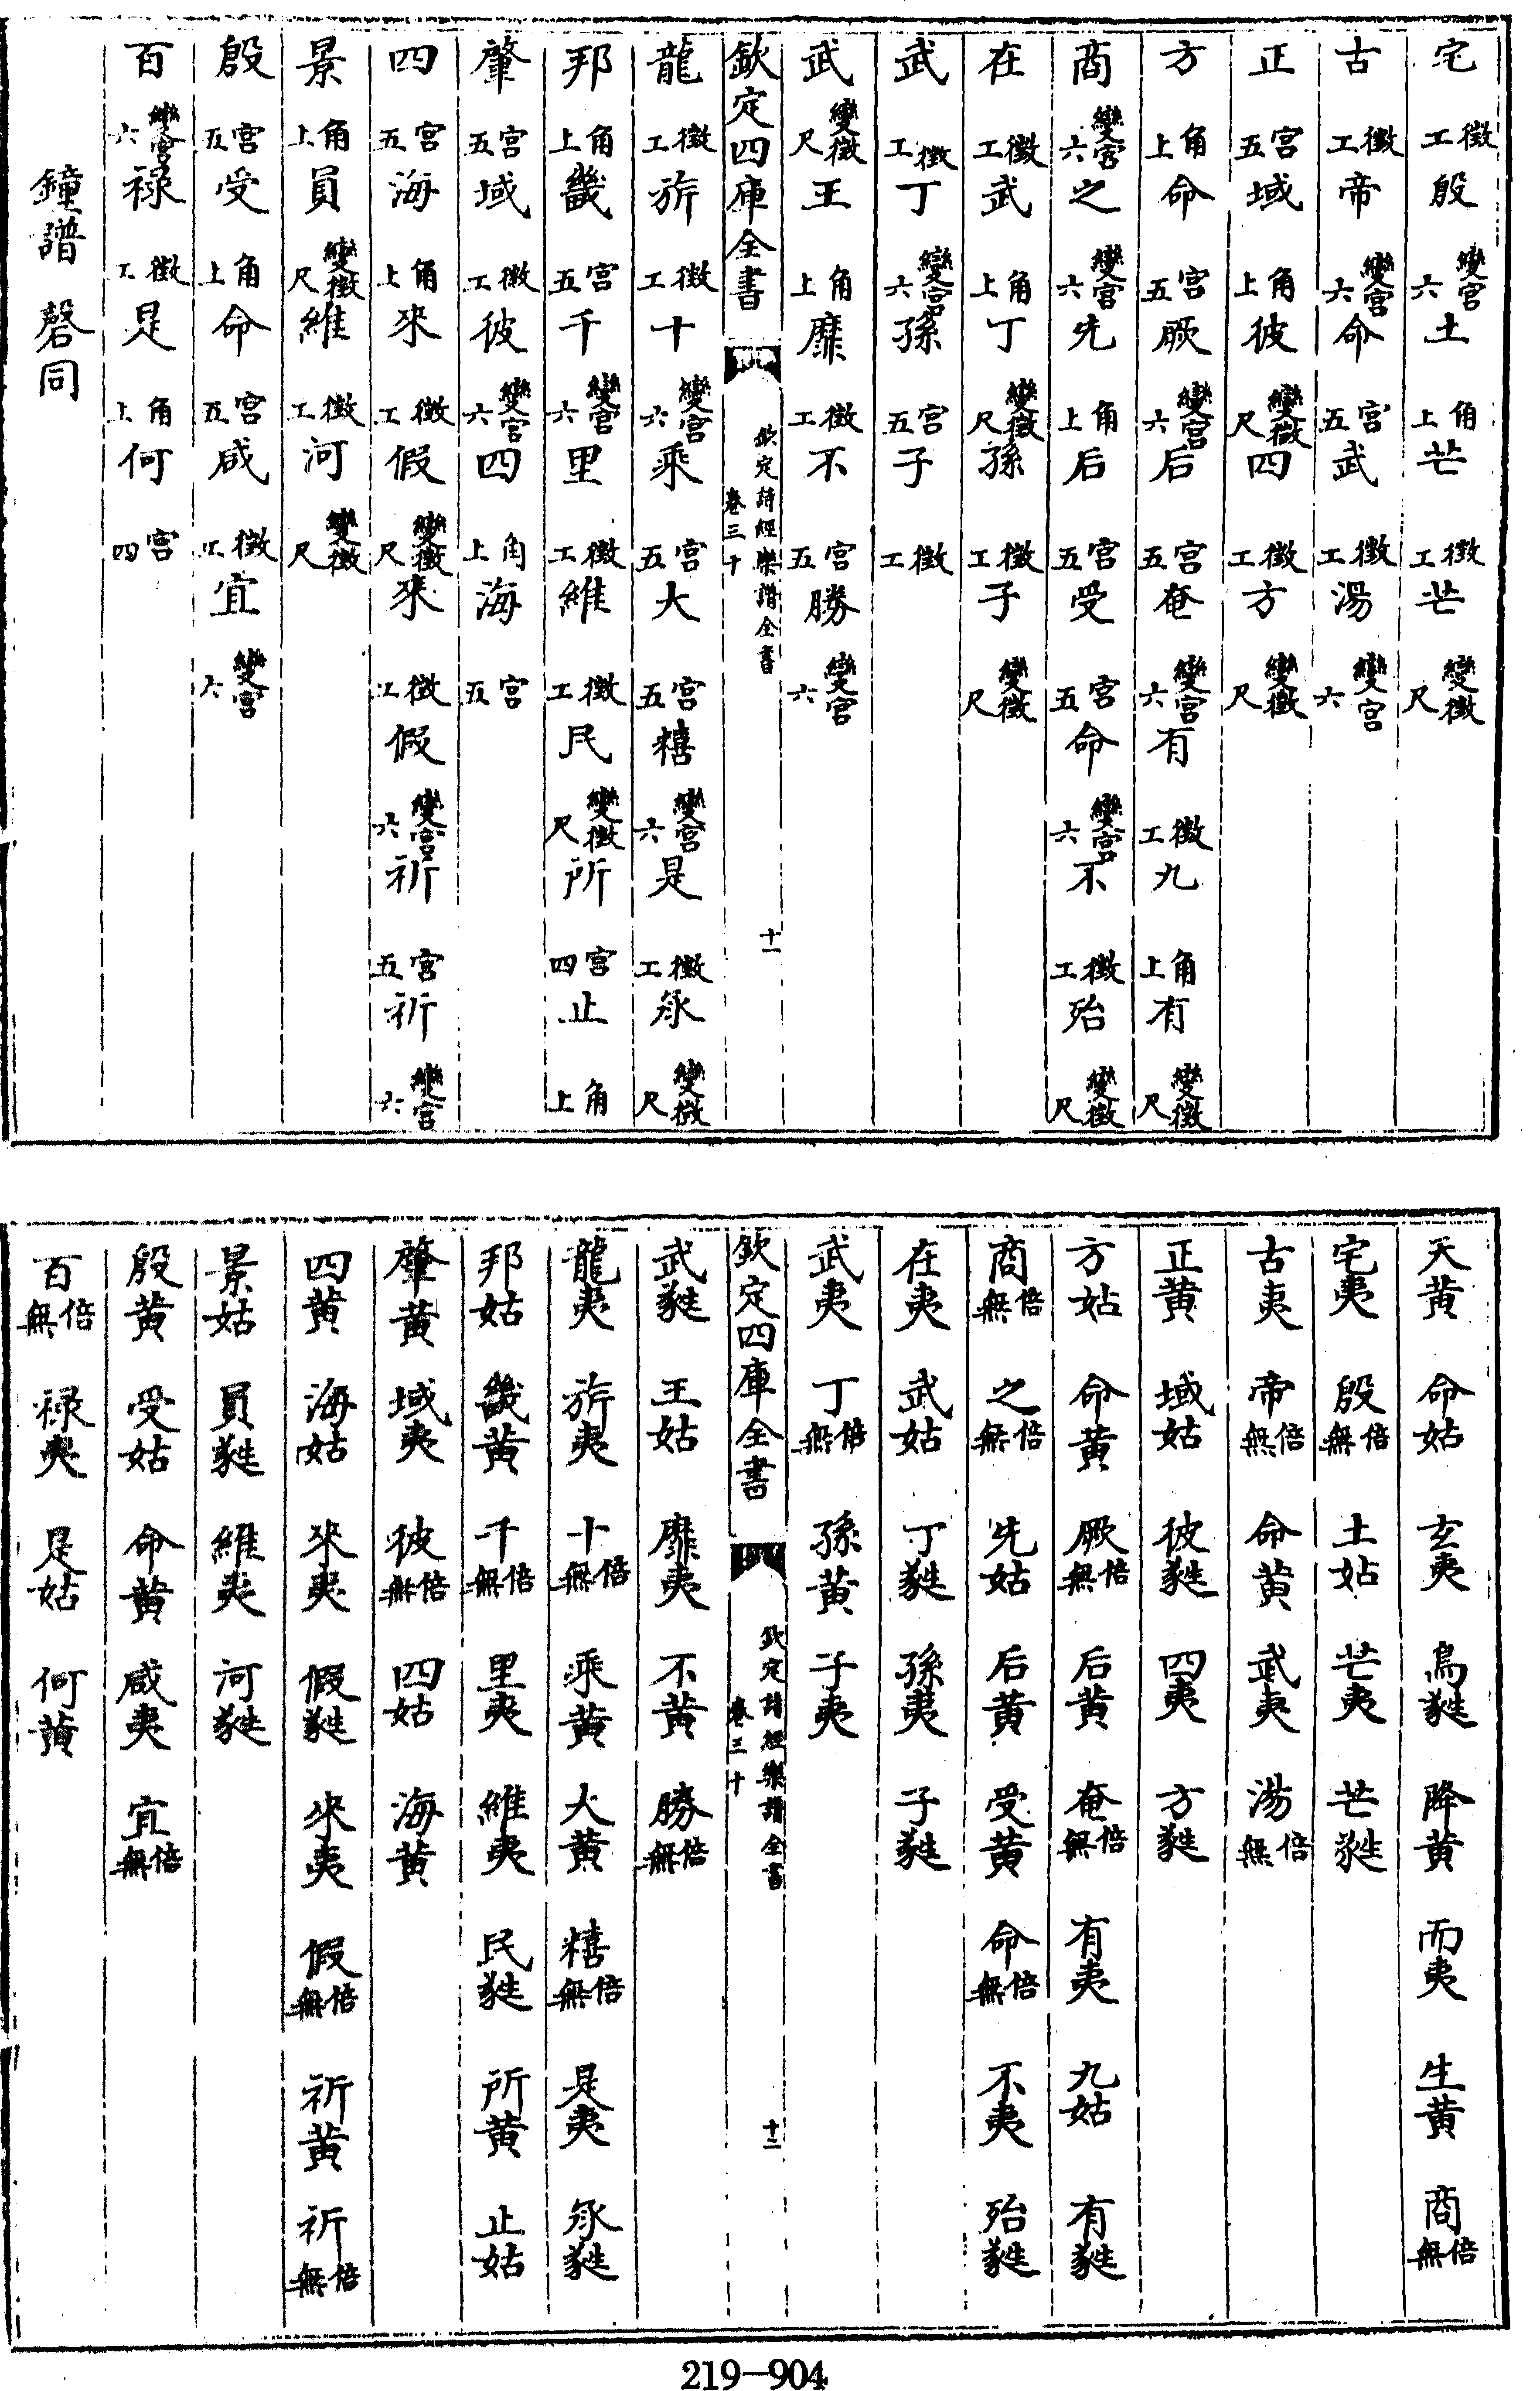 宅徵工殷變宮六土角上芒徵工芒變徵尺
古徵工帝變宮六命宮五武徵工湯變宮六
正宮五域角上彼變徵尺四徵工方變徵尺
方角上命宮五厥變宮六后宮五奄變宮六有徵工九角上有變徵尺
商變宮六之變宮六先角上后宮五受宮五命變宮六不徵工殆變徵尺
在徵工武角上丁變徵尺孫徵工子變徵尺
武徵工丁變宮六孫宮五子徵工
武變徵尺王角上靡徵工不宮五勝變宮六
欽定四庫全書 欽定詩經樂譜全書 卷三十 十一
龍徵工旂徵工十變宮六乘宮五大宮五糦變宮六是徵工承變徵尺
邦角上畿宮五千變宮六里徵工維徵工民變徵尺所宮四止角上
肇宮五域徵工彼變宮六四角上海宮五
四宮五海角上來徵工假變徵尺來徵工假變宮六祈宮五祈變宮六
景角上員變徵尺維徵工河變徵尺
殷宮五受角上命宮五咸徵工宜變宮六
百變宮六祿徵工是角上何宮四
鐘譜 磬同
天黃命姑玄夷鳥蕤降黃而夷生黃商倍無
宅夷殷倍無土姑芒夷芒蕤
古夷帝倍無命黃武夷湯倍無
正黃域姑彼蕤四夷方蕤
方姑命黃厥倍無后黃奄倍無有夷九姑有蕤
商倍無之倍無先姑后黃受黃命倍無不夷殆蕤
在夷武姑丁蕤孫夷子蕤
武夷丁倍無孫黃子夷
欽定四庫全書 欽定詩經樂譜全書 卷三十 十二
武蕤王姑靡夷不黃勝倍無
龍夷旂夷十倍無乘黃大黃糦倍無是夷承蕤
邦姑畿黃千倍無里夷維夷民蕤所黃止姑
肇黃域夷彼倍無四姑海黃
四黃海姑來夷假蕤來夷假倍無祈黃祈倍無
景姑員蕤維夷河蕤
殷黃受姑命黃咸夷宜倍無
百倍無祿夷是姑何黃
219-904